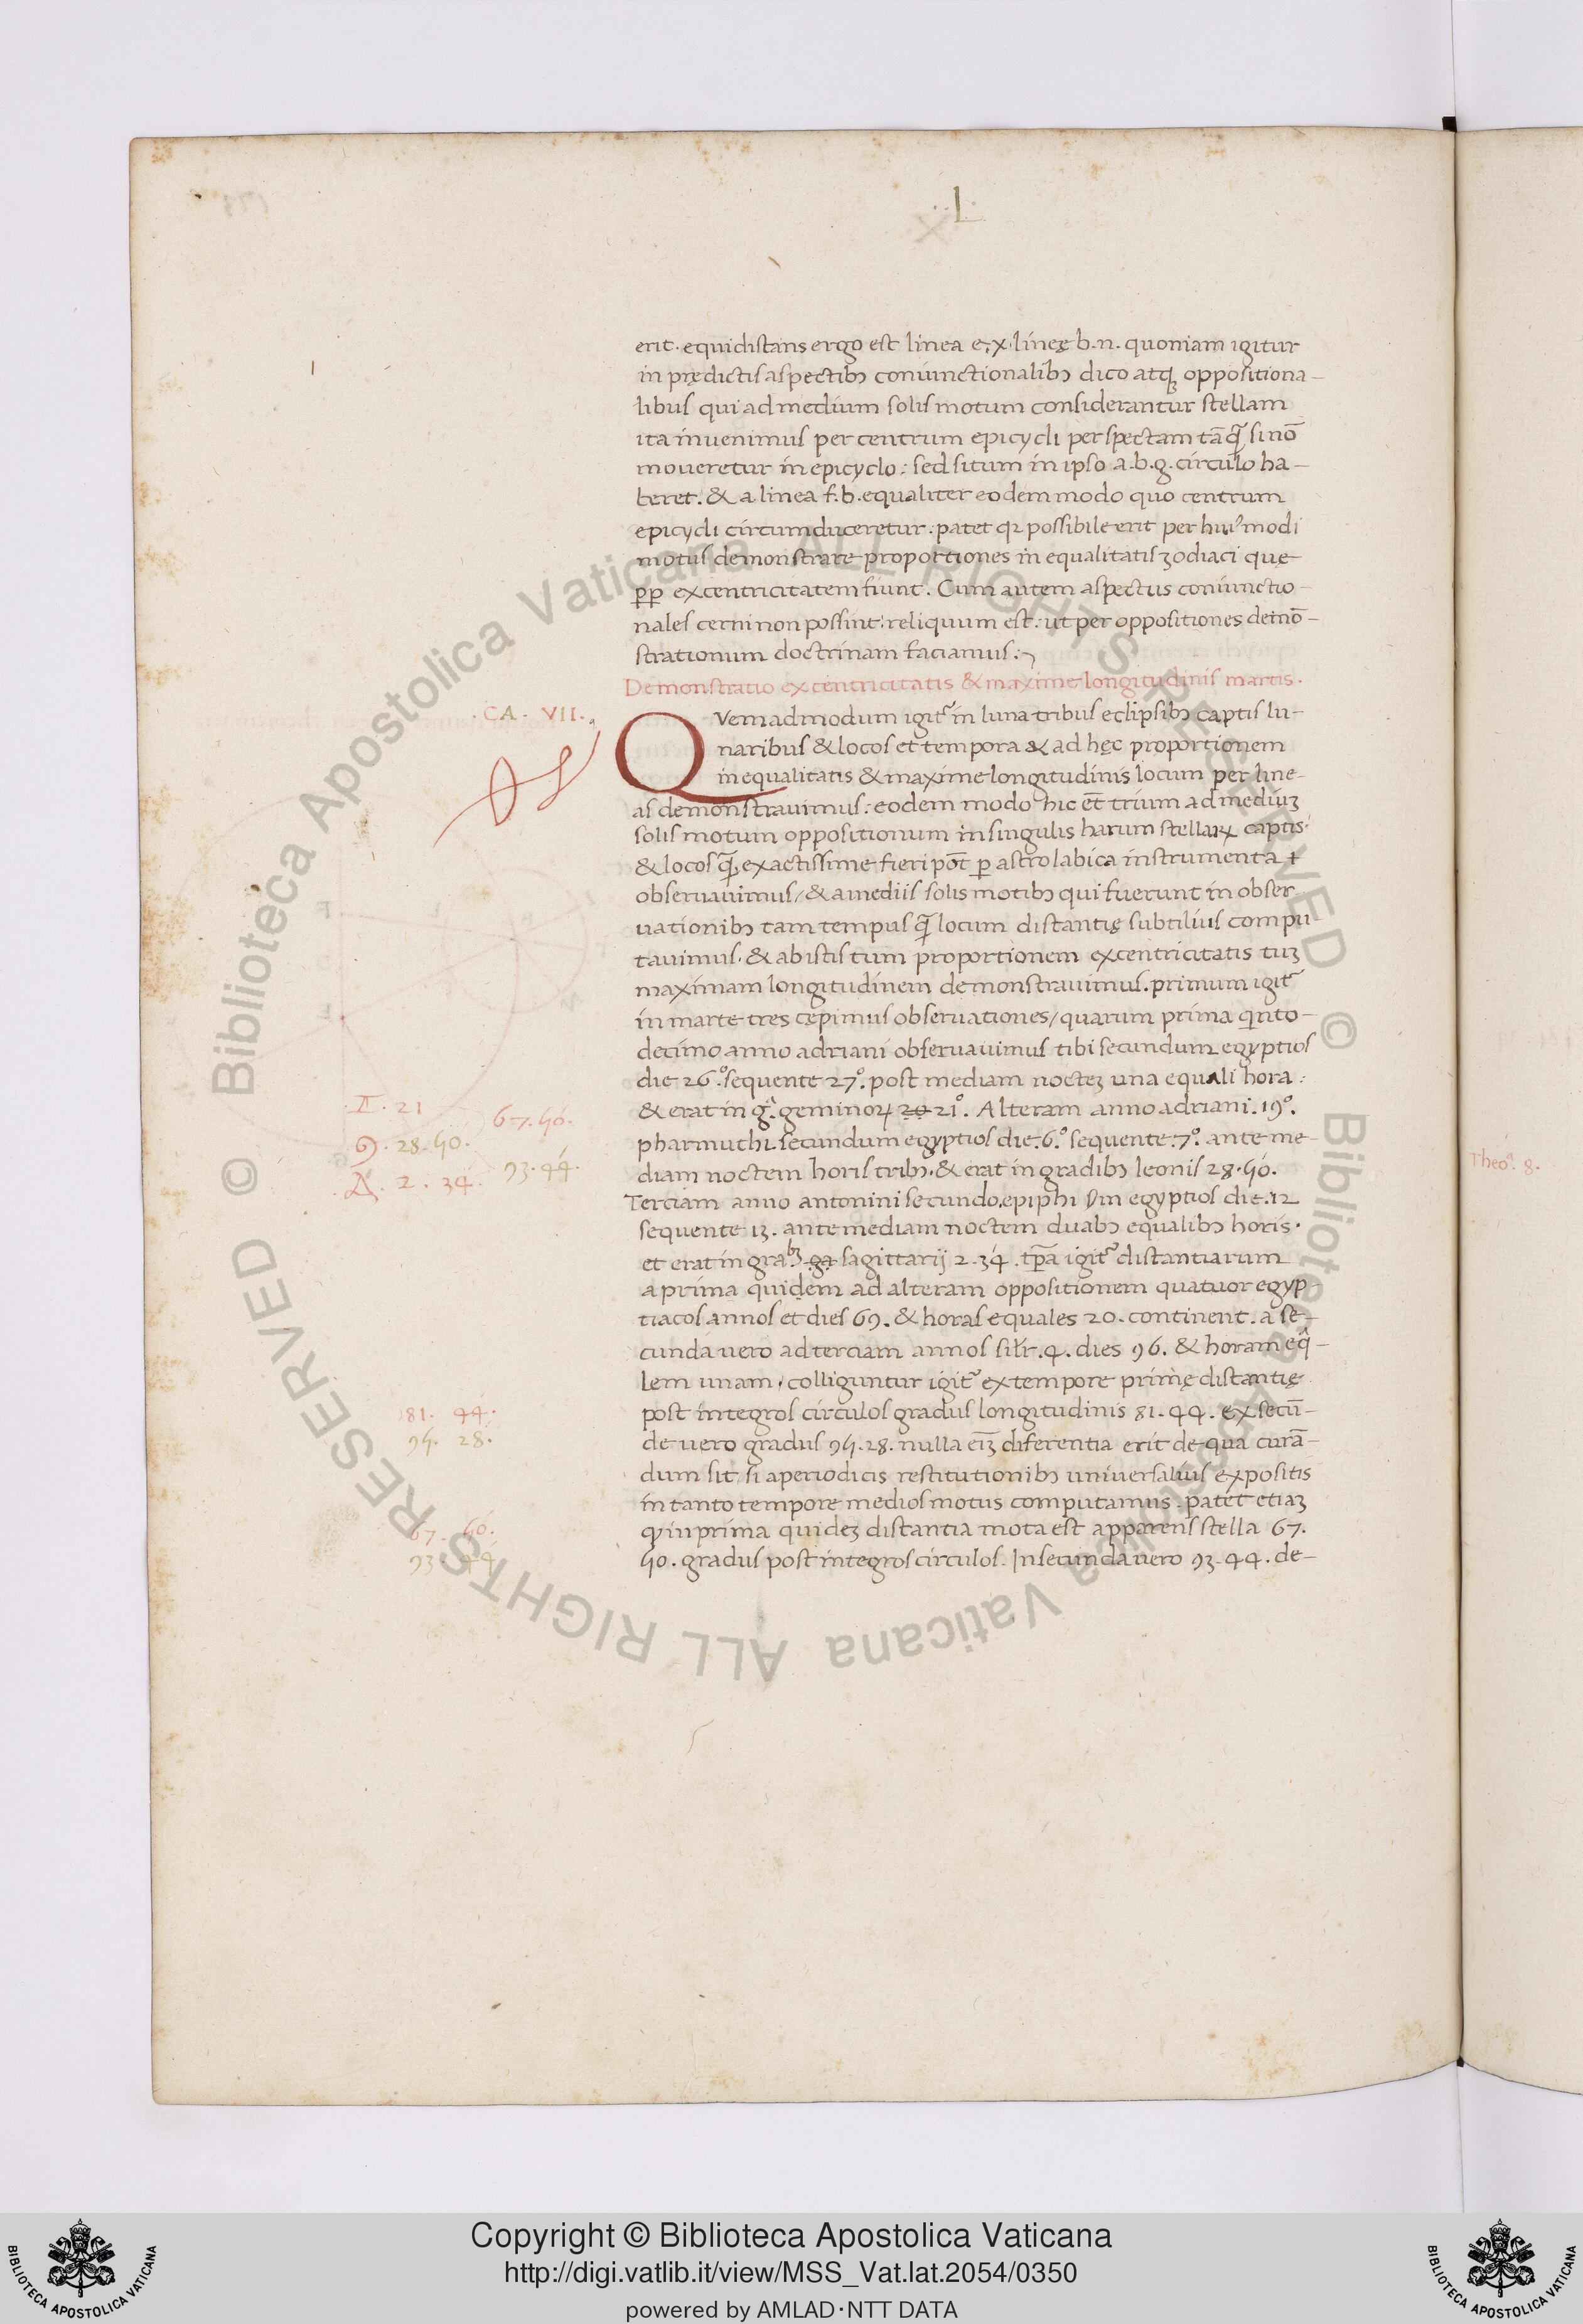 ·L·
erit. equidistans ergo est linea e.x. lineę b.n. quoniam igitur
in prędictis aspectibꝫ coniunctionalibꝫ dico atqꝫ oppositiona-
libus qui ad medium solis motum considerantur stellam
ita inuenimus per centrum epicycli perspectam tāꝗ̄ si nō
moueretur in epicyclo: sed situm in ipso a.b.g. circulo ha-
beret. & a linea f.b. equaliter eodem modo quo centrum
epicycli circumduceretur. patet qꝛ possibile erit per huiꝰmodi
motus demonstrare proportiones inequalitatis zodiaci que
ꝑꝑ excentricitatem fiunt. Cum autem aspectus coniunctio-
nales cerni non possint: reliquum est: ut per oppositiones demō-
strationum doctrinam faciamus:
Demonstratio excentricitatis & maxime longitudinis martis.
·CA· VII·
Quemadmodum igit᷑ in luna tribus eclipsibꝫ captis lu-
naribus & locos et tempora & ad hęc proportionem
inequalitatis & maxime longitudinis locum per line-
as demonstrauimus: eodem modo hic et̄ trium ad mediuꝫ
solis motum oppositionum in singulis harum stellaꝝ captis
& locos ꝗ̄ exactissime fieri pōt ꝑ astrolabica instrumenta +
obseruauimus/ & a mediis solis motibꝫ qui fuerunt in obser-
uationibꝫ tam tempus ꝗ̄ locum distantię subtilius compu
tauimus. & ab istis tum proportionem excentricitatis tuꝫ
maximam longitudinem demonstrauimus. primum igit᷑
in marte tres cępimus obseruationes/ quarum prima qͥnto-
decimo anno adriani obseruauimus tibi secundum egyptios
die 26.º sequente 27.º post mediam nocteꝫ una equali hora:
& erat in g.ͥ geminoꝝ 20 21º. Alteram anno adriani. 19º.
pharmuthi secundum egyptios die. 6.º sequente. 7º. ante me-
diam noctem horis tribꝫ. & erat in gradibꝫ leonis 28.50.
Terciam anno antonini secundo. epiphi s̄m egyptios die. 12
sequente 13. ante mediam noctem duabꝫ equalibꝫ horis.
et erat in gra.bꝫ ga sagittarij 2.34. tꝑa igit᷑ distantiarum
a prima quidem ad alteram oppositionem quatuor egyp-
tiacos annos et dies 69. & horas equales 20. continent. a se-
cunda uero ad terciam annos sil̄r. 4. dies 96. & horam eq̄-
lem unam. colliguntur igit᷑ ex tempore primę distantię
post integros circulos gradus longitudinis 81.44. ex secū-
de uero gradus 95.28. nulla ei̅ꝫ diferentia erit de qua curā-
dum sit si a periodicis restitutionibꝫ uniuersalius expositis
in tanto tempore medios motus computamus. patet etiaꝫ
ꝙ in prima quideꝫ distantia mota est apparens stella 67.
50. gradus post integros circulos. In secunda uero 93.44. de-
♊. 21
67.50.
♌. 28.50.
93.44.
♐. 2. 34.
81. 44.
95. 28.
67. 50.
93. 44
Theoª. 8.
© Biblioteca Apostolica Vaticana ALL RIGHTS RESERVED © Biblioteca Apostolica Vaticana ALL RIGHTS RESERVED
Copyright © Biblioteca Apostolica Vaticana
http://digi.vatlib.it/view/MSS_Vat.lat.2054/0350
powered by AMLAD·NTT DATA
BIBLIOTECA APOSTOLICA VATICANA
BIBLIOTECA APOSTOLICA VATICANA